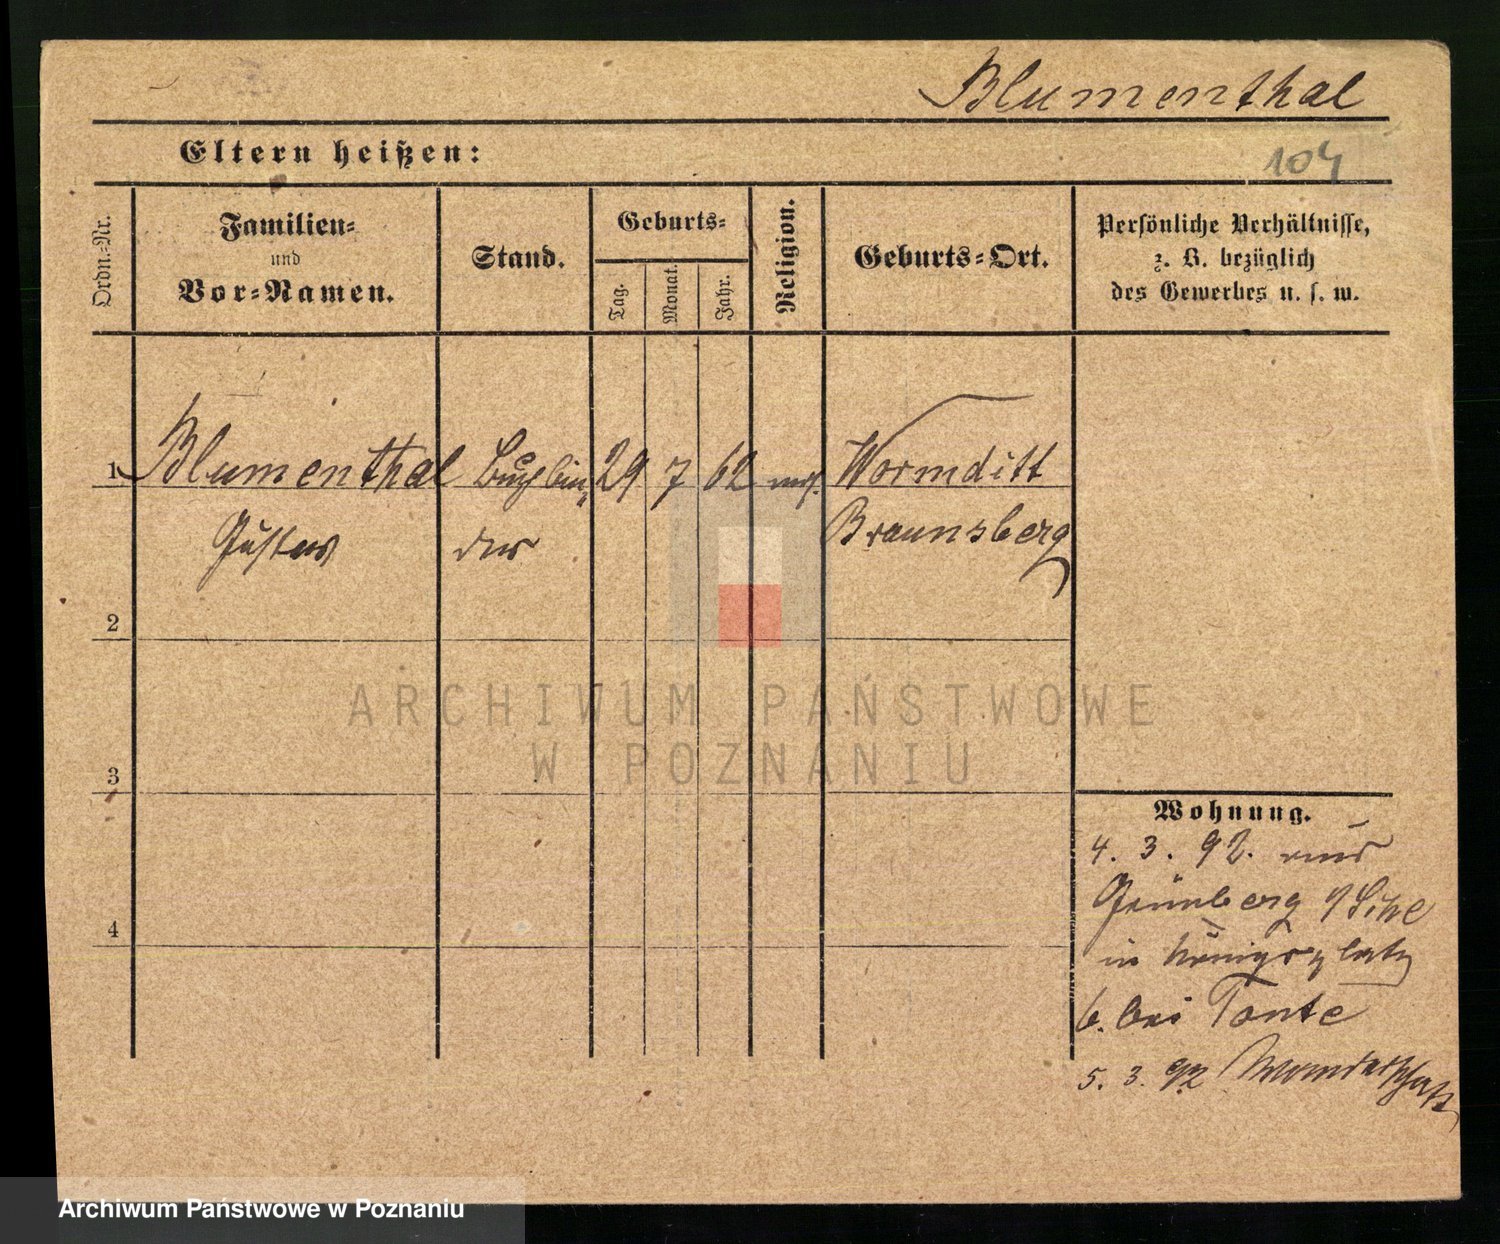 Blumenthal
Eltern heißen:
104
Ordn.-Nr.
Familien-
und
Vor-Namen.
Stand.
Geburts-
Tag.
Monat.
Jahr.
Religion.
Geburts-Ort.
Persönliche Verhältnisse,
z. B. bezüglich
des Gewerbes u. s. w.
1 Blumenthal Buchbin- 29 7 62 Wormditt
Gustav der Braunsberg
2
3
4
Wohnung.
4. 3. 92. aus
Grünberg
in Königsplatz
6. bei Tante
5. 3. 92 Wanderschaft
ARCHIWUM PAŃSTWOWE
W POZNANIU
Archiwum Państwowe w Poznaniu